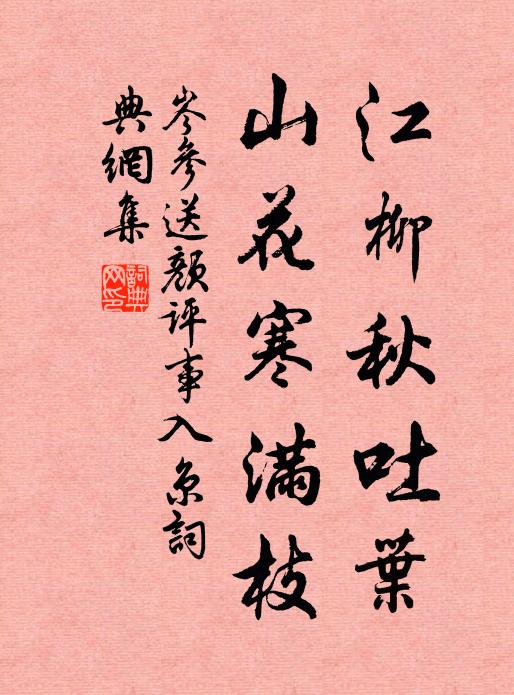 江柳秋吐葉
山花寒滿枝
岑參送顏評事入京詞
典網集
詞典
网印